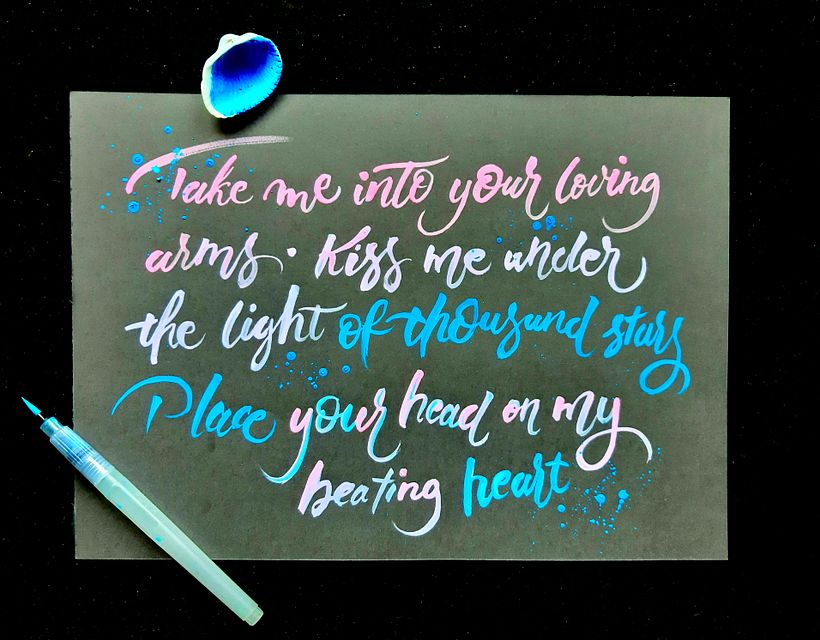 Take me into your loving
arms. Kiss me under
the light of thousand stars
Place your head on my
beating heart